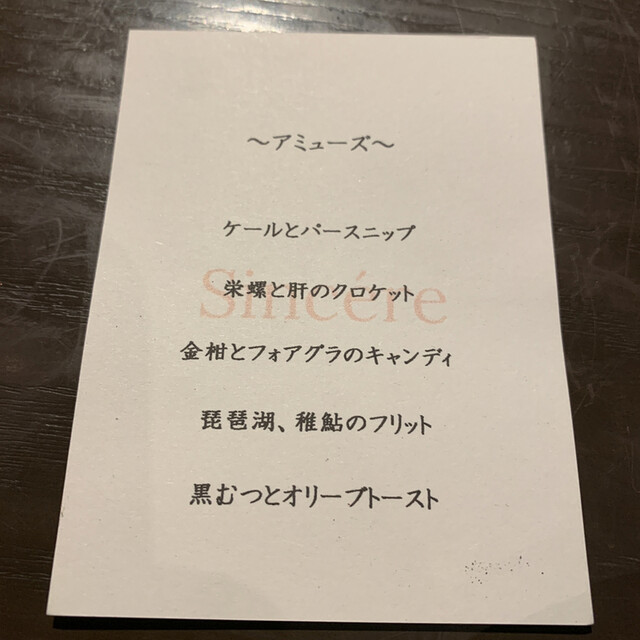 ～アミューズ～
ケールとパースニップ
Sincére
栄螺と肝のクロケット
金柑とフォアグラのキャンディ
琵琶湖、稚鮎のフリット
黒むつとオリーブトースト